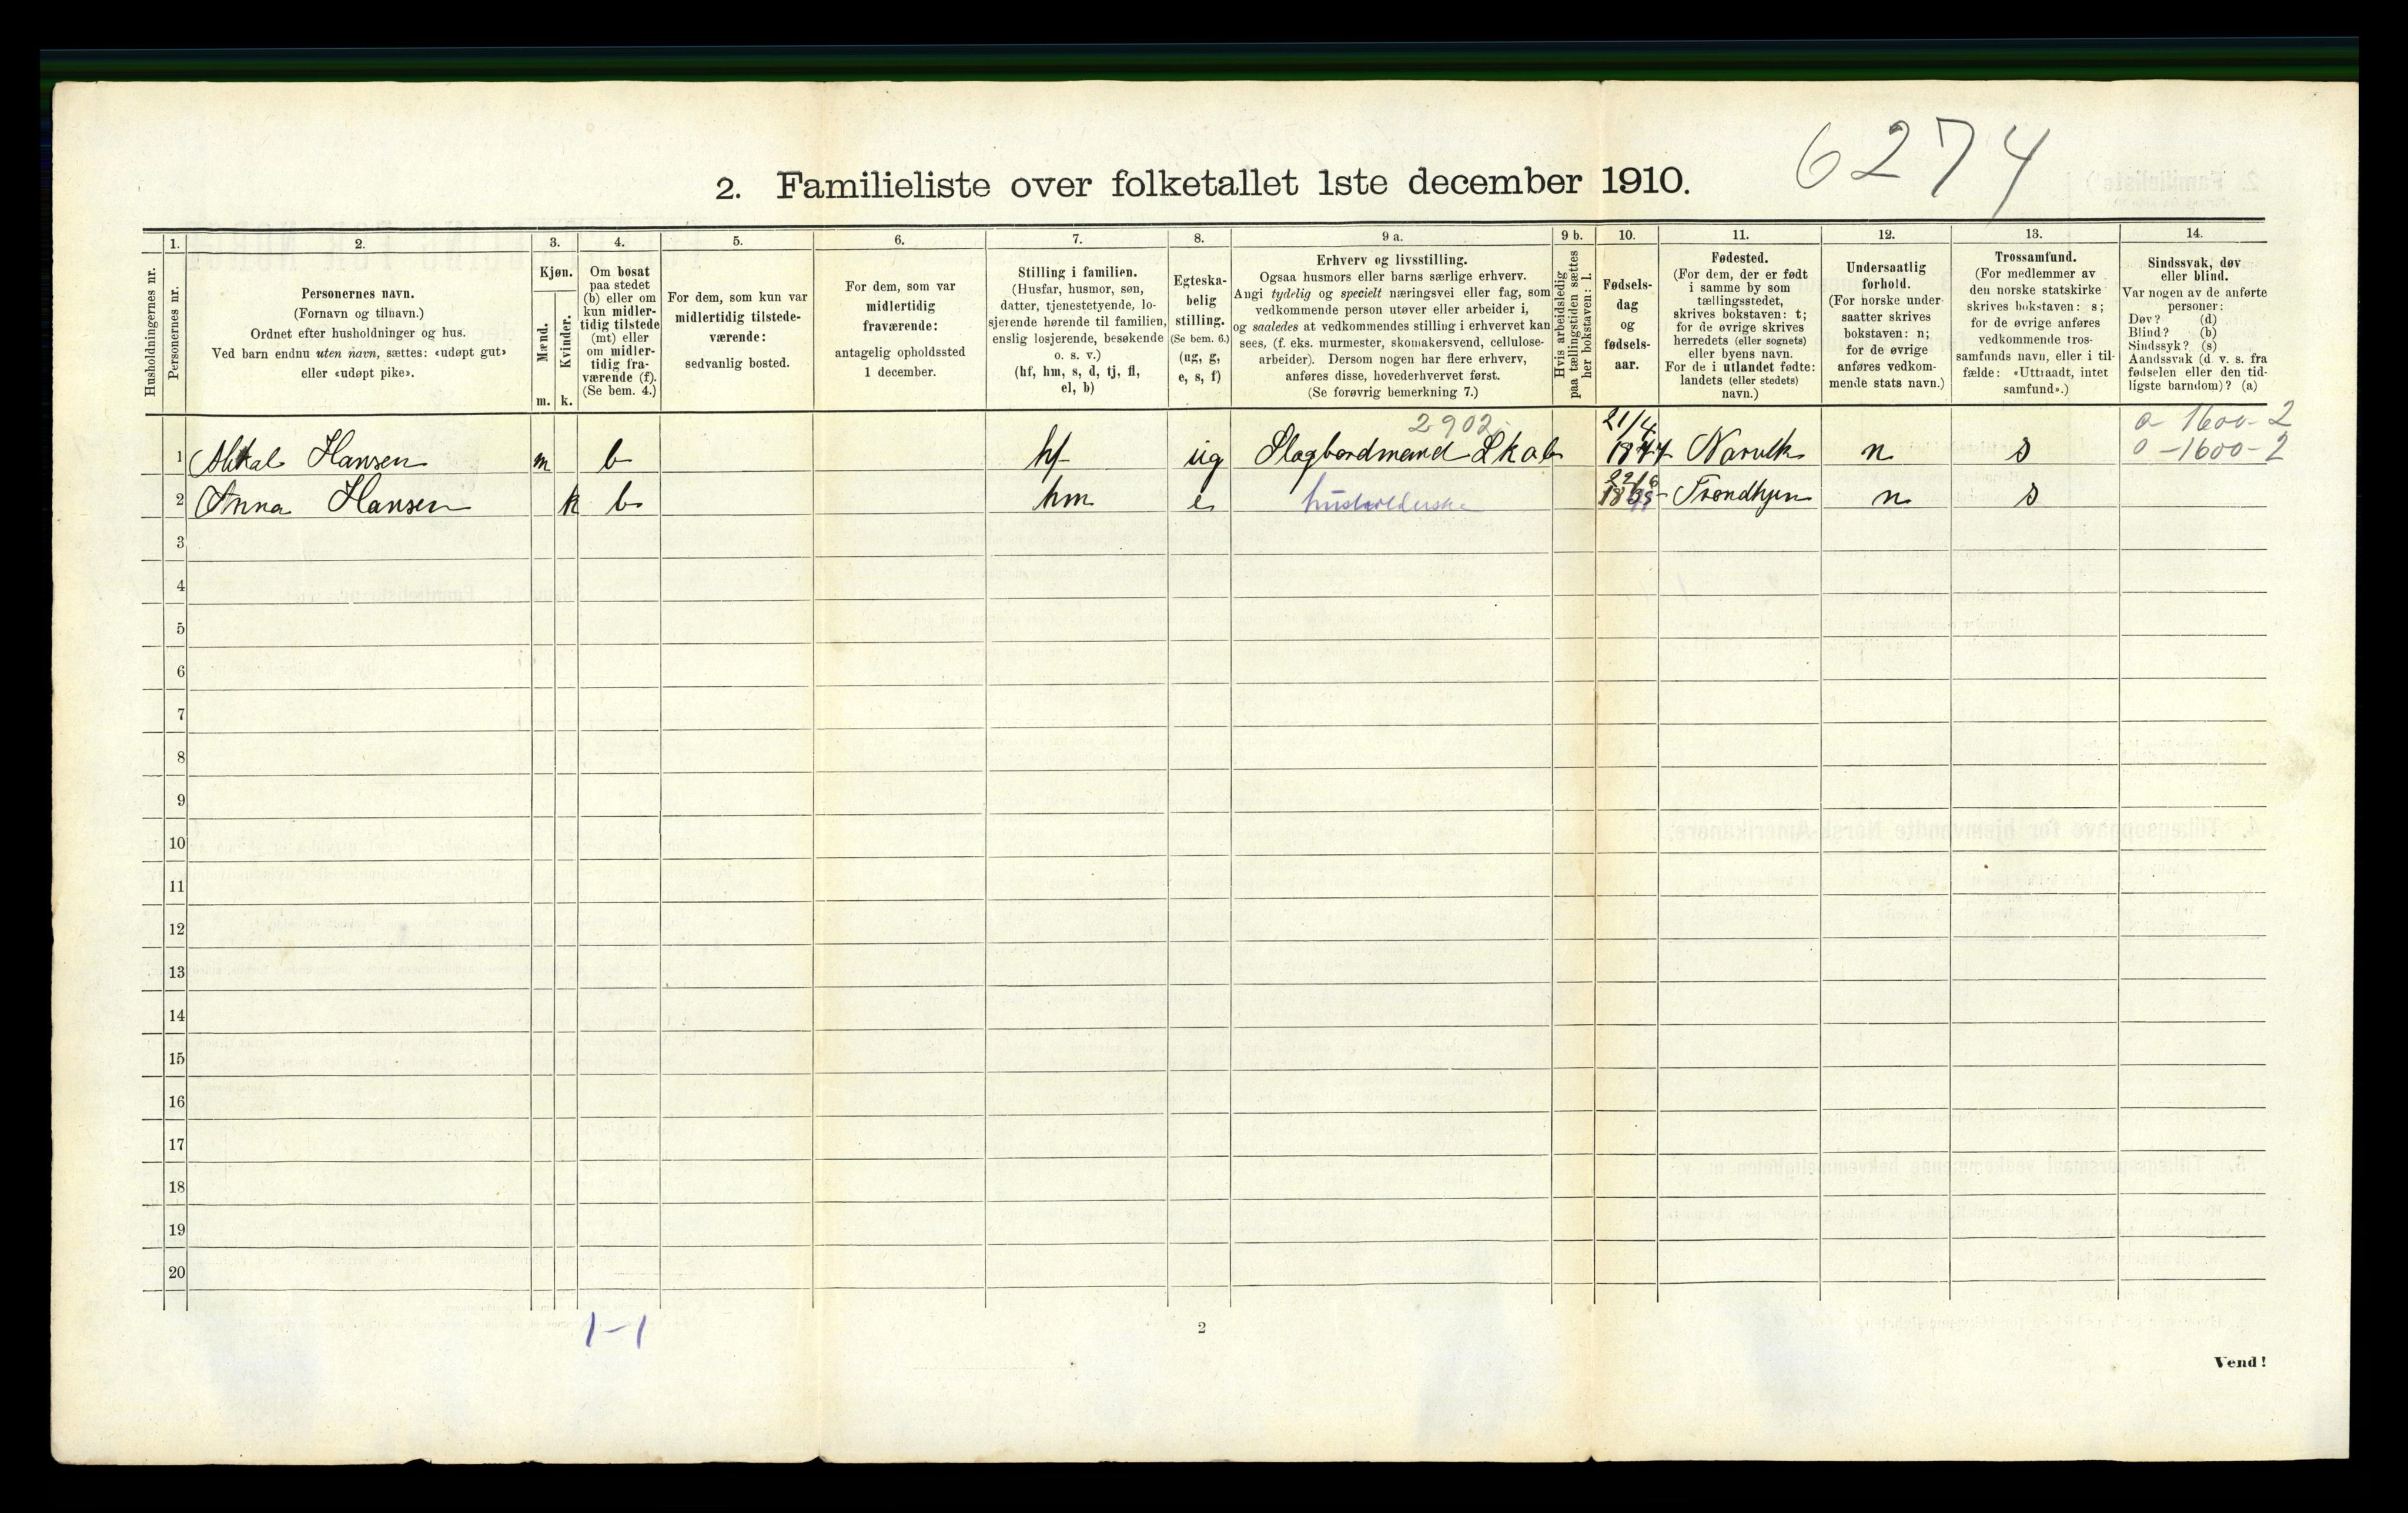 6274
2. Familieliste over folketallet 1ste december 1910.
Husholdningernes nr.
1.
Personernes nr.
2.
Personernes navn.
(Fornavn og tilnavn.)
Ordnet efter husholdninger og hus.
Ved barn endnu uten navn, sættes: «udøpt gut»
eller «udøpt pike».
3.
Kjøn.
Mænd.
Kvinder.
m. k.
4.
Om bosat
paa stedet
(b) eller om
kun midler-
tidig tilstede
(mt) eller
om midler-
tidig fra-
værende (f).
(Se bem. 4.)
5.
For dem, som kun var
midlertidig tilstede-
værende:
sedvanlig bosted.
6.
For dem, som var
midlertidig
fraværende:
antagelig opholdssted
1 december.
7.
Stilling i familien.
(Husfar, husmor, søn,
datter, tjenestetyende, lo-
sjerende hørende til familien,
enslig losjerende, besøkende
o. s. v.)
(hf, hm, s, d, tj, fl,
el, b)
8.
Egteska-
belig
stilling.
(Se bem. 6.)
(ug, g,
e, s, f)
9 a.
Erhverv og livsstilling.
Ogsaa husmors eller barns særlige erhverv.
Angi tydelig og specielt næringsvei eller fag, som
vedkommende person utøver eller arbeider i,
og saaledes at vedkommendes stilling i erhvervet kan
sees, (f. eks. murmester, skomakersvend, cellulose-
arbeider). Dersom nogen har flere erhverv,
anføres disse, hovederhvervet først.
(Se forøvrig bemerkning 7.)
9 b.
Hvis arbeidsledig
paa tællingstiden sættes
her bokstaven: l.
10.
Fødsels-
dag
og
fødsels-
aar.
11.
Fødested.
(For dem, der er født
i samme by som
tællingsstedet,
skrives bokstaven: t;
for de øvrige skrives
herredets (eller sognets)
eller byens navn.
For de i utlandet fødte:
landets (eller stedets)
navn.)
12.
Undersaatlig
forhold.
(For norske under-
saatter skrives
bokstaven: n;
for de øvrige
anføres vedkom-
mende stats navn.)
13.
Trossamfund.
(For medlemmer av
den norske statskirke
skrives bokstaven: s;
for de øvrige anføres
vedkommende tros-
samfunds navn, eller i til-
fælde: «Uttraadt, intet
samfund».)
14.
Sindssvak, døv
eller blind.
Var nogen av de anførte
personer:
Døv? (d)
Blind? (b)
Sindssyk? (s)
Aandssvak (d. v. s. fra
fødselen eller den tid-
ligste barndom)? (a)
2902 21/4 0-1600-2
1 Hansen m b hf ug n s 0-1600-2
2 Anna Hansen k b hm e Trondhjem n s
3
4
5
6
7
8
9
10
11
12
13
14
15
16
17
18
19
20
1-1
2
Vend!